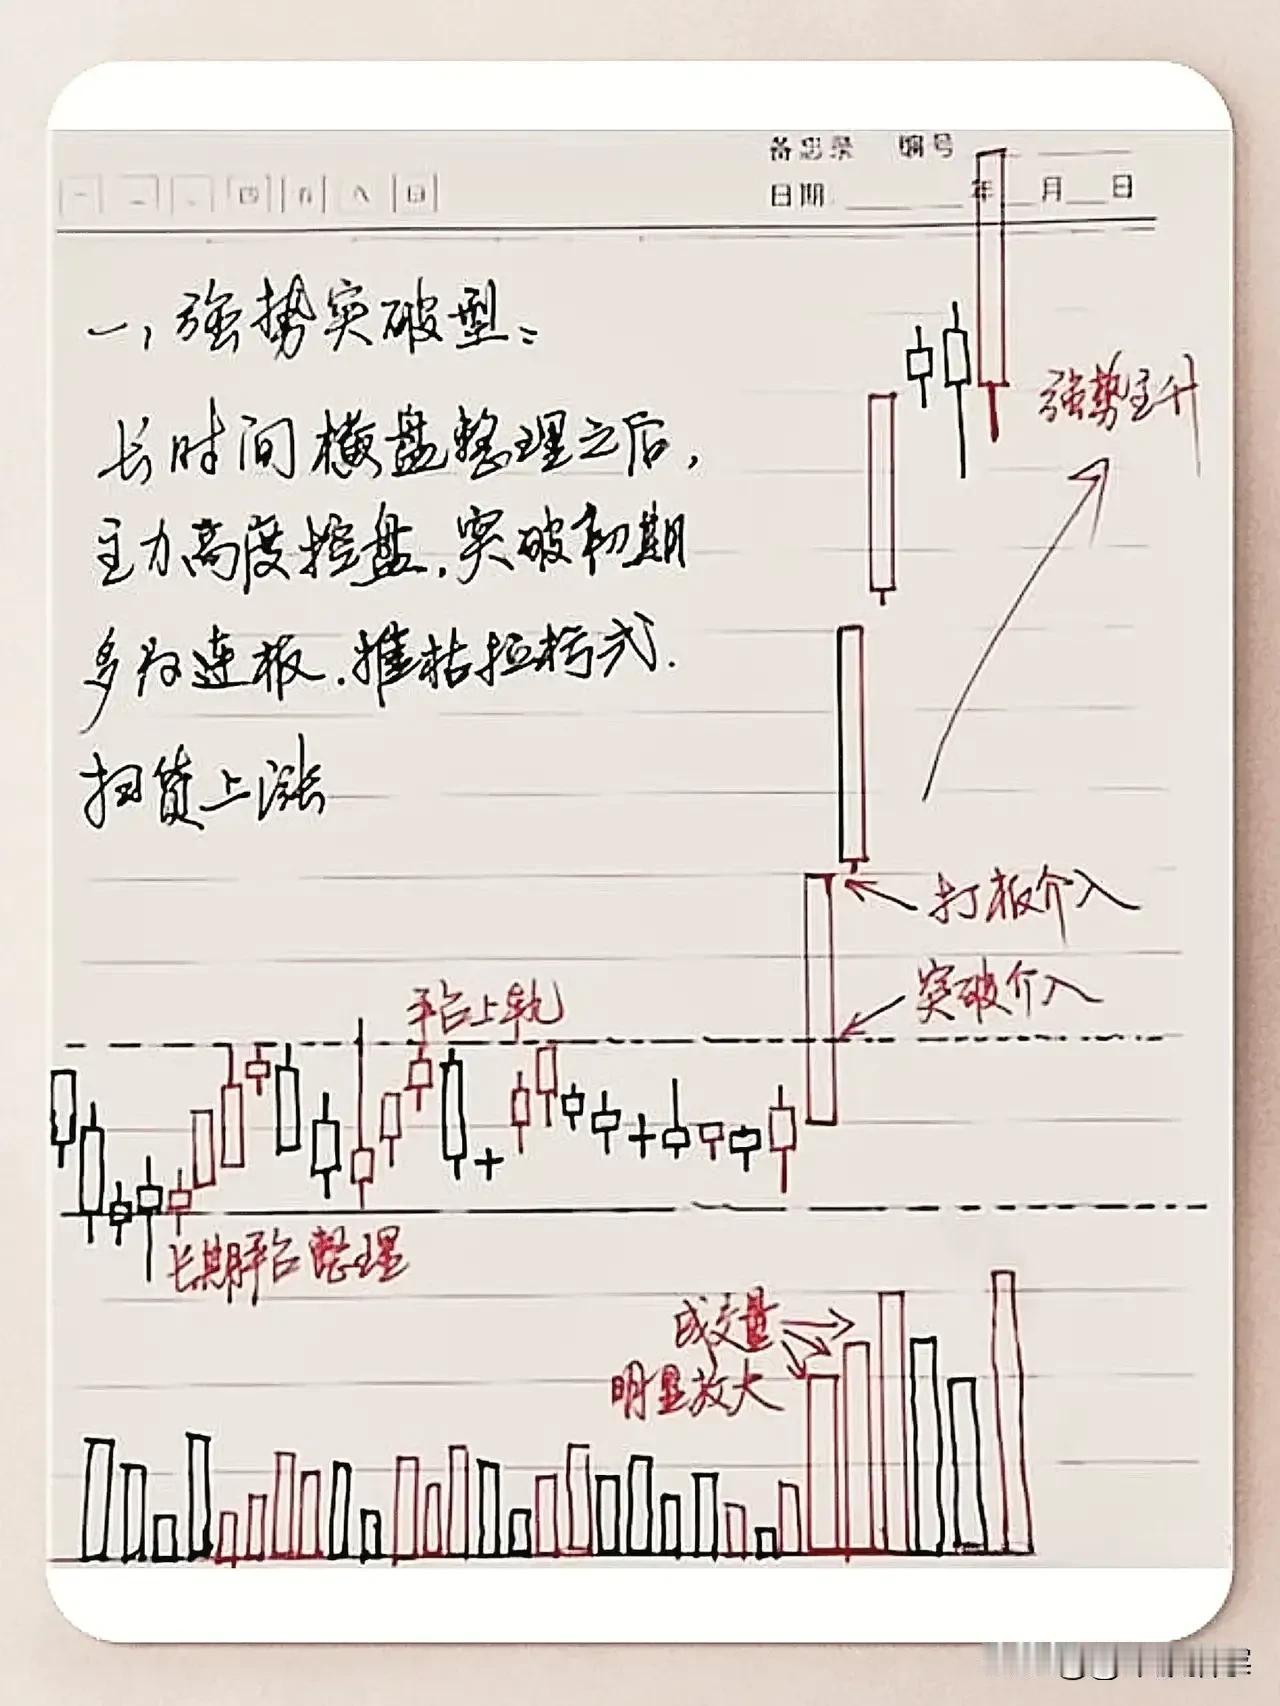 备忘录 编号
日期 年 月 日
一 二 四 五 六 日
一，强势突破型：
长时间横盘整理之后，
主力高度控盘，突破初期
多为连板．摧枯拉朽式．
扫货上涨
强势主升
打板介入
突破介入
平台上轨
长期平台整理
成交量
明显放大